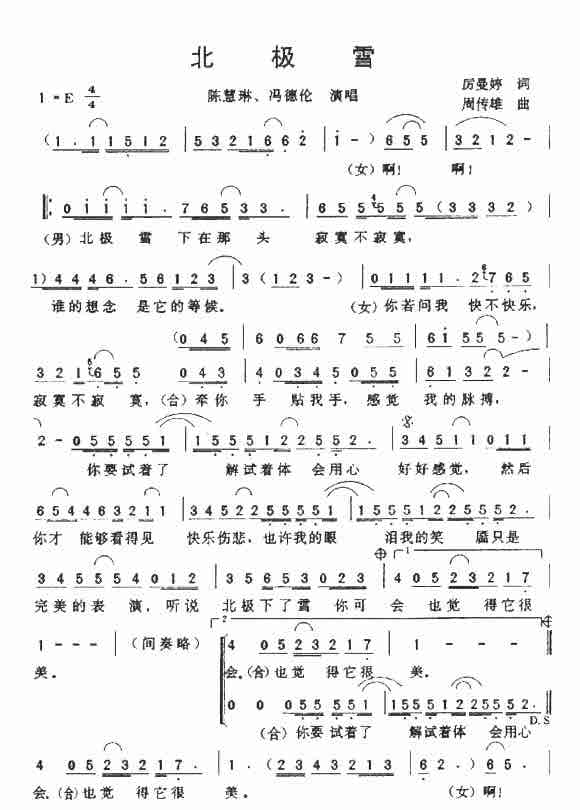 北 极 雪
1=E 4/4
陈慧琳、冯德伦 演唱
厉曼婷 词
周传雄 曲
(1. 1 1 5 1 2 | 5 3 2 1 6 6 2 | 1 - ) 6 5 5 | 3 2 1 2 - |
(女)啊! 啊!
0 1 1 1 1. 7 6 5 3 3. | 6 5 5 4 5 5 5 (3 3 3 2) |
(男)北极 雪 下在那 头 寂寞不寂寞,
1) 4 4 4 6. 5 6 1 2 3 | 3 (1 2 3 - ) | 0 1 1 1 1. 2 6 7 6 5 |
谁的想念 是它的等候。 (女)你若问我 快不快乐,
(0 4 5 | 6 0 6 6 7 5 5 | 6 1 5 5 - )
3 2 1 6 6 5 5 0 4 5 | 3 0 3 4 4 5 0 4 5 | 6 1 3 2 2 - |
寂寞不寂 寞,(合)牵你 手 贴我手,感觉 我的脉搏,
2 - 0 5 5 5 5 1 | 1 5 5 5 1 2 2 5 5 2 . | 3 4 5 1 1 0 1 1 |
你要试着了 解试着体 会用心 好好感觉, 然后
6 5 4 4 6 3 2 1 2 | 3 4 5 2 2 5 5 5 5 1 | 1 5 5 5 1 2 2 5 5 5 2. |
你才 能够看得见 快乐伤悲,也许我的眼 泪我的笑 靥只是
1
3 4 5 5 5 4 0 1 2 | 3 5 6 5 3 0 2 3 | 4 0 5 2 3 2 1 7 |
完美的表 演,听说 北极下了雪 你可 会 也觉 得它很
2
1 - - - | (间奏略) 4 0 5 2 3 2 1 7 | 1 - - -
美。 会,(合)也觉 得它很 美。
0 0 0 5 5 5 5 1 | 1 5 5 5 1 2 2 5 5 2.
D.S
(合)你要 试着了 解试着体 会用心
4 0 5 2 3 2 1 7. | 1 . (2 3 4 3 2 1 3 | 6 2 . ) 6 5 |
会,(合)也觉 得它很 美。 (女)啊!